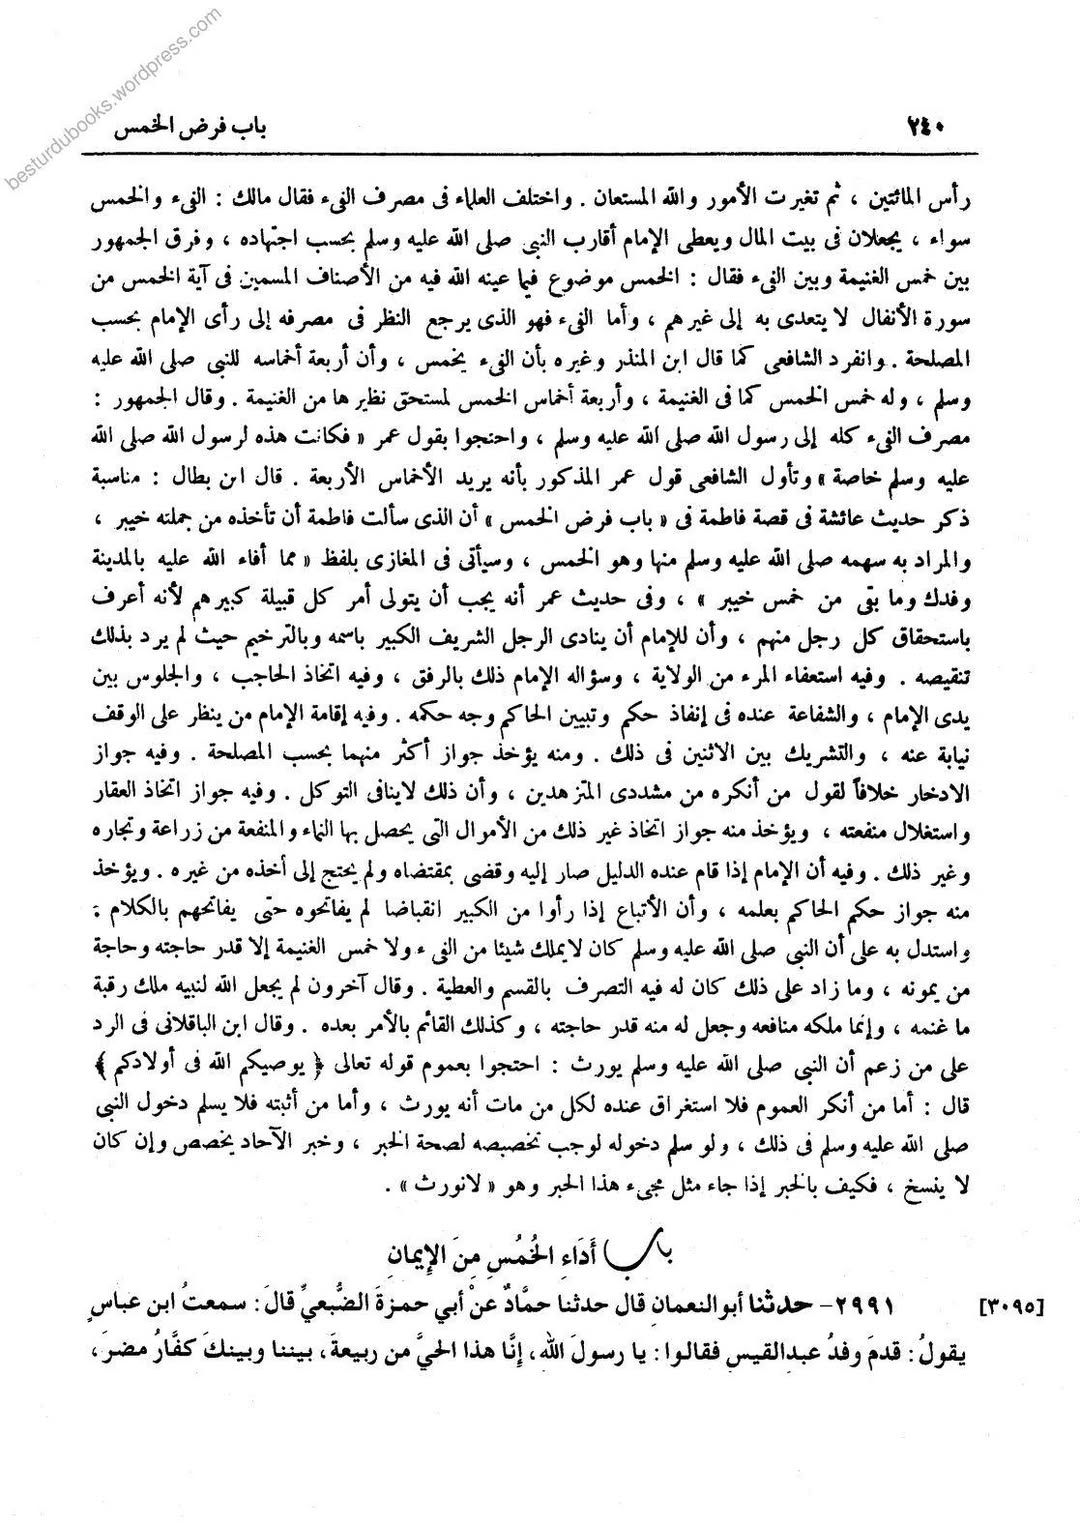 besturdubooks.wordpress.com
٢٤٠ باب فرض الخمس
رأس المائتين ، ثم تغيرت الأمور والله المستعان . واختلف العلماء فى مصرف الفىء فقال مالك : الفىء والخمس
سواء ، يجعلان فى بيت المال ويعطى الإمام أقارب النبى صلى الله عليه وسلم بحسب اجتهاده ، وفرق الجمهور
بين خمس الغنيمة وبين الفىء فقال : الخمس موضوع فيما عينه الله فيه من الأصناف المسمين فى آية الخمس من
سورة الأنفال لا يتعدى به إلى غيرهم ، وأما الفىء فهو الذى يرجع النظر فى مصرفه إلى رأى الإمام بحسب
المصلحة . وانفرد الشافعى كما قال ابن المنذر وغيره بأن الفىء يخمس ، وأن أربعة أخماسه للنبى صلى الله عليه
وسلم ، وله خمس الخمس كما فى الغنيمة ، وأربعة أخماس الخمس لمستحق نظيرها من الغنيمة . وقال الجمهور :
مصرف الفىء كله إلى رسول الله صلى الله عليه وسلم ، واحتجوا بقول عمر « فكانت هذه لرسول الله صلى الله
عليه وسلم خاصة » وتأول الشافعى قول عمر المذكور بأنه يريد الأخماس الأربعة . قال ابن بطال : مناسبة
ذكر حديث عائشة فى قصة فاطمة فى « باب فرض الخمس » أن الذى سألت فاطمة أن تأخذه من جملته خيبر ،
والمراد به سهمه صلى الله عليه وسلم منها وهو الخمس ، وسيأتى فى المغازى بلفظ « مما أفاء الله عليه بالمدينة
وفدك وما بقى من خمس خيبر » ، وفى حديث عمر أنه يجب أن يتولى أمر كل قبيلة كبيرهم لأنه أعرف
باستحقاق كل رجل منهم ، وأن للإمام أن ينادى الرجل الشريف الكبير باسمه وبالترخيم حيث لم يرد بذلك
تنقيصه . وفيه استعفاء المرء من الولاية ، وسؤاله الإمام ذلك بالرفق ، وفيه اتخاذ الحاجب ، والجلوس بين
يدى الإمام ، والشفاعة عنده فى إنفاذ حكم وتبيين الحاكم وجه حكمه . وفيه إقامة الإمام من ينظر على الوقف
نيابة عنه ، والتشريك بين الاثنين فى ذلك . ومنه يؤخذ جواز أكثر منهما بحسب المصلحة . وفيه جواز
الادخار خلافاً لقول من أنكره من مشددى المتزهدين ، وأن ذلك لاينافى التوكل . وفيه جواز اتخاذ العقار
واستغلال منفعته ، ويؤخذ منه جواز اتخاذ غير ذلك من الأموال التى يحصل بها النماء والمنفعة من زراعة وتجاره
وغير ذلك . وفيه أن الإمام إذا قام عنده الدليل صار إليه وقضى بمقتضاه ولم يحتج إلى أخذه من غيره . ويؤخذ
منه جواز حكم الحاكم بعلمه ، وأن الأتباع إذا رأوا من الكبير انقباضا لم يفاتحوه حتى يفاتحهم بالكلام .
واستدل به على أن النبى صلى الله عليه وسلم كان لايملك شيئا من الفىء ولا خمس الغنيمة إلا قدر حاجته وحاجة
من يمونه ، وما زاد على ذلك كان له فيه التصرف بالقسم والعطية . وقال آخرون لم يجعل الله لنبيه ملك رقبة
ما غنمه ، وإنما ملكه منافعه وجعل له منه قدر حاجته ، وكذلك القائم بالأمر بعده . وقال ابن الباقلانى فى الرد
على من زعم أن النبى صلى الله عليه وسلم يورث : احتجوا بعموم قوله تعالى ﴿ يوصيكم الله فى أولادكم ﴾
قال : أما من أنكر العموم فلا استغراق عنده لكل من مات أنه يورث ، وأما من أثبته فلا يسلم دخول النبى
صلى الله عليه وسلم فى ذلك ، ولو سلم دخوله لوجب تخصيصه لصحة الخبر ، وخبر الآحاد يخصص وإن كان
لا ينسخ ، فكيف بالخبر إذا جاء مثل مجىء هذا الخبر وهو « لانورث » .
باب أَدَاءِ الخُمُسِ مِنَ الإِيمانِ
[٣٠٩٥] ٢٩٩١- حدثنا أبوالنعمان قال حدثنا حمَّادٌ عنْ أبي حمزةَ الضُّبعيِّ قالَ: سمعتُ ابن عباسٍ
يقولُ: قدمَ وفدُ عبدالقيسِ فقالوا: يا رسولَ اللهِ، إنَّا هذا الحيَّ من ربيعةَ، بيننا وبينكَ كفَّارُ مضرَ،